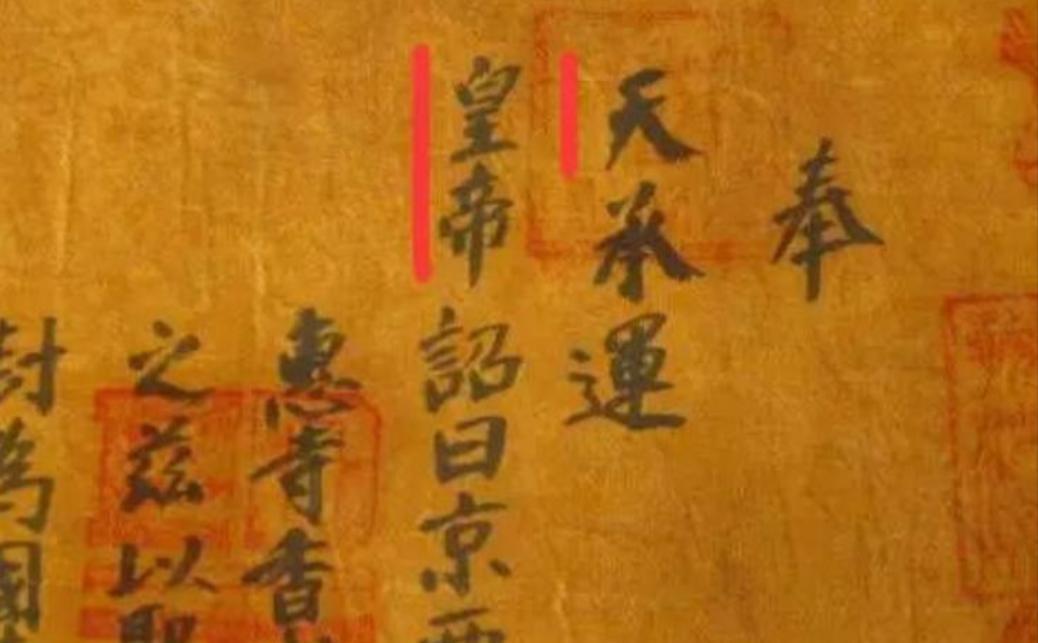 奉
天承運
皇帝詔曰京西
惠寺香
之茲以聖
封為國